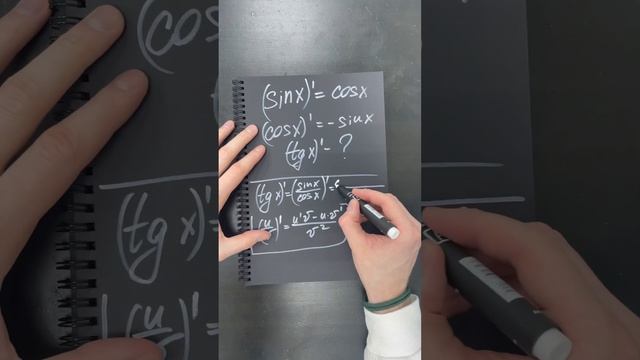 (sinx)' = cosx
(cosx)' = -sinx
(tgx)' - ?
(tgx)' = (sinx/cosx)' =
(u/)' = u'v - u·v'/v²